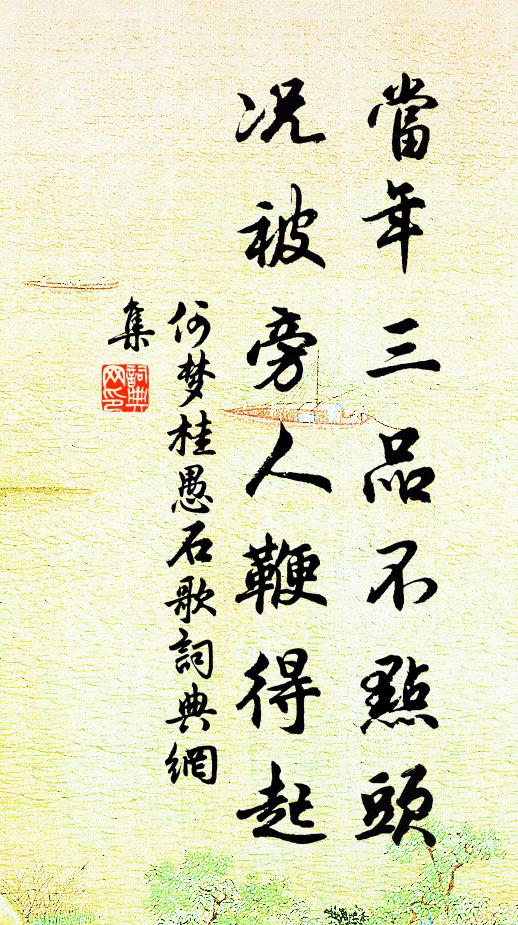 當年三品不點頭
况被旁人鞭得起
何梦桂愚石歌詞典網
集
詞典
网印